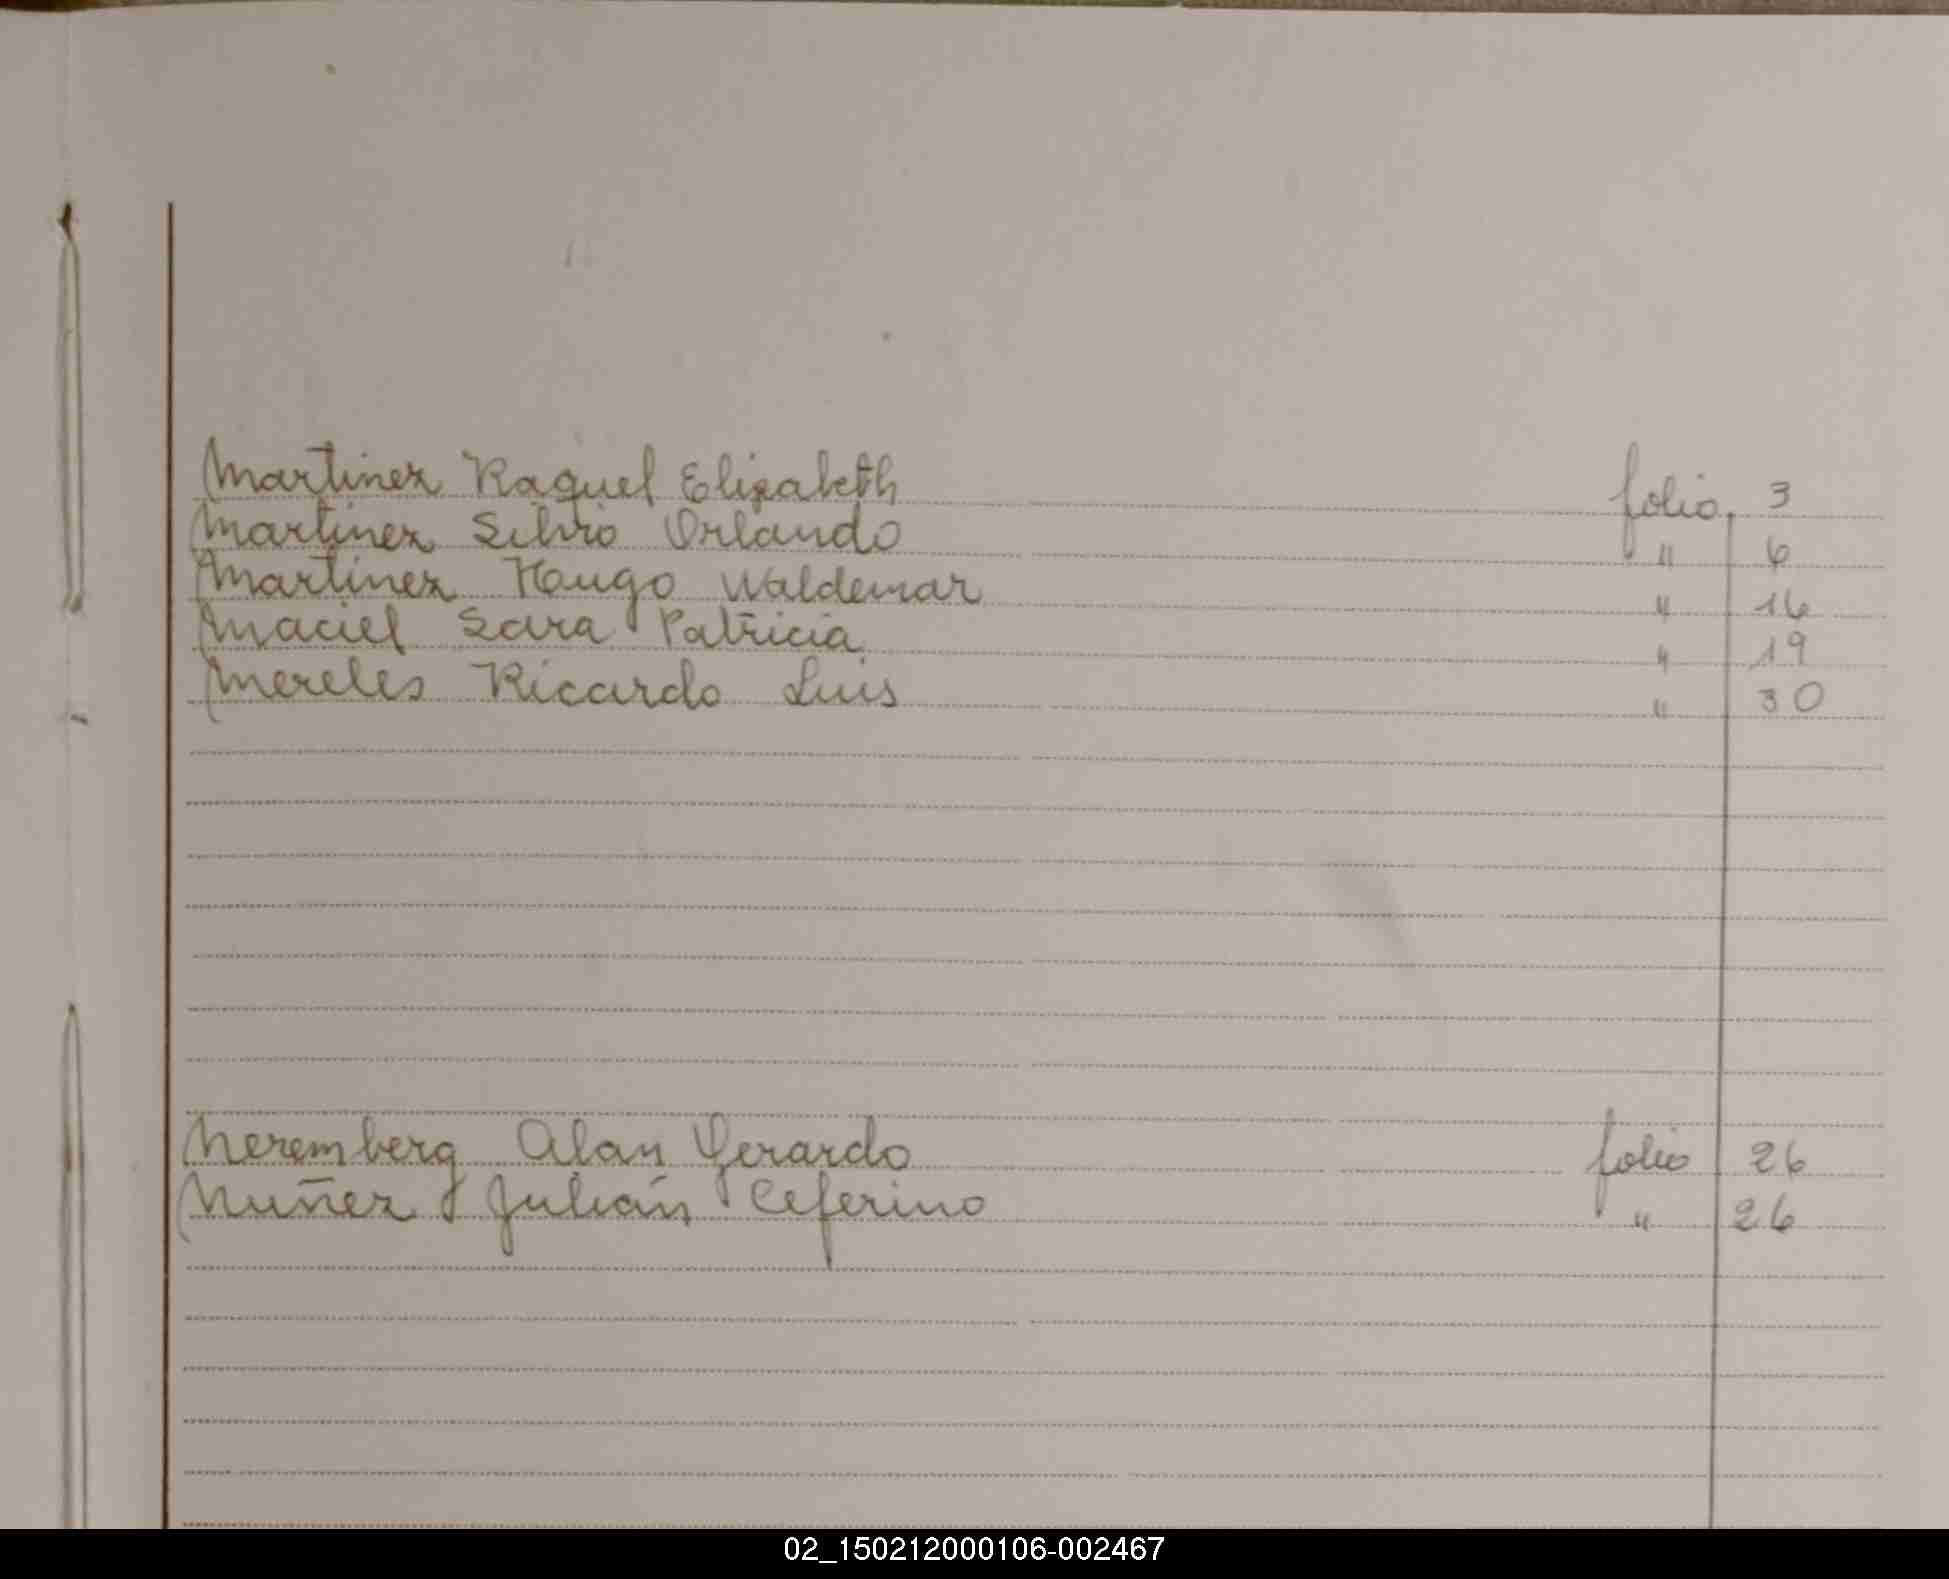 Martinez Raquel Elizabeth folio 3
Martinez Silvio Orlando " 6
Martinez Hugo Waldemar " 16
Maciel Sara Patricia " 19
Mereles Ricardo Luis " 30
Neremberg Alan Gerardo folio 26
Nuñez Julián Ceferino " 26
02_150212000106-002467